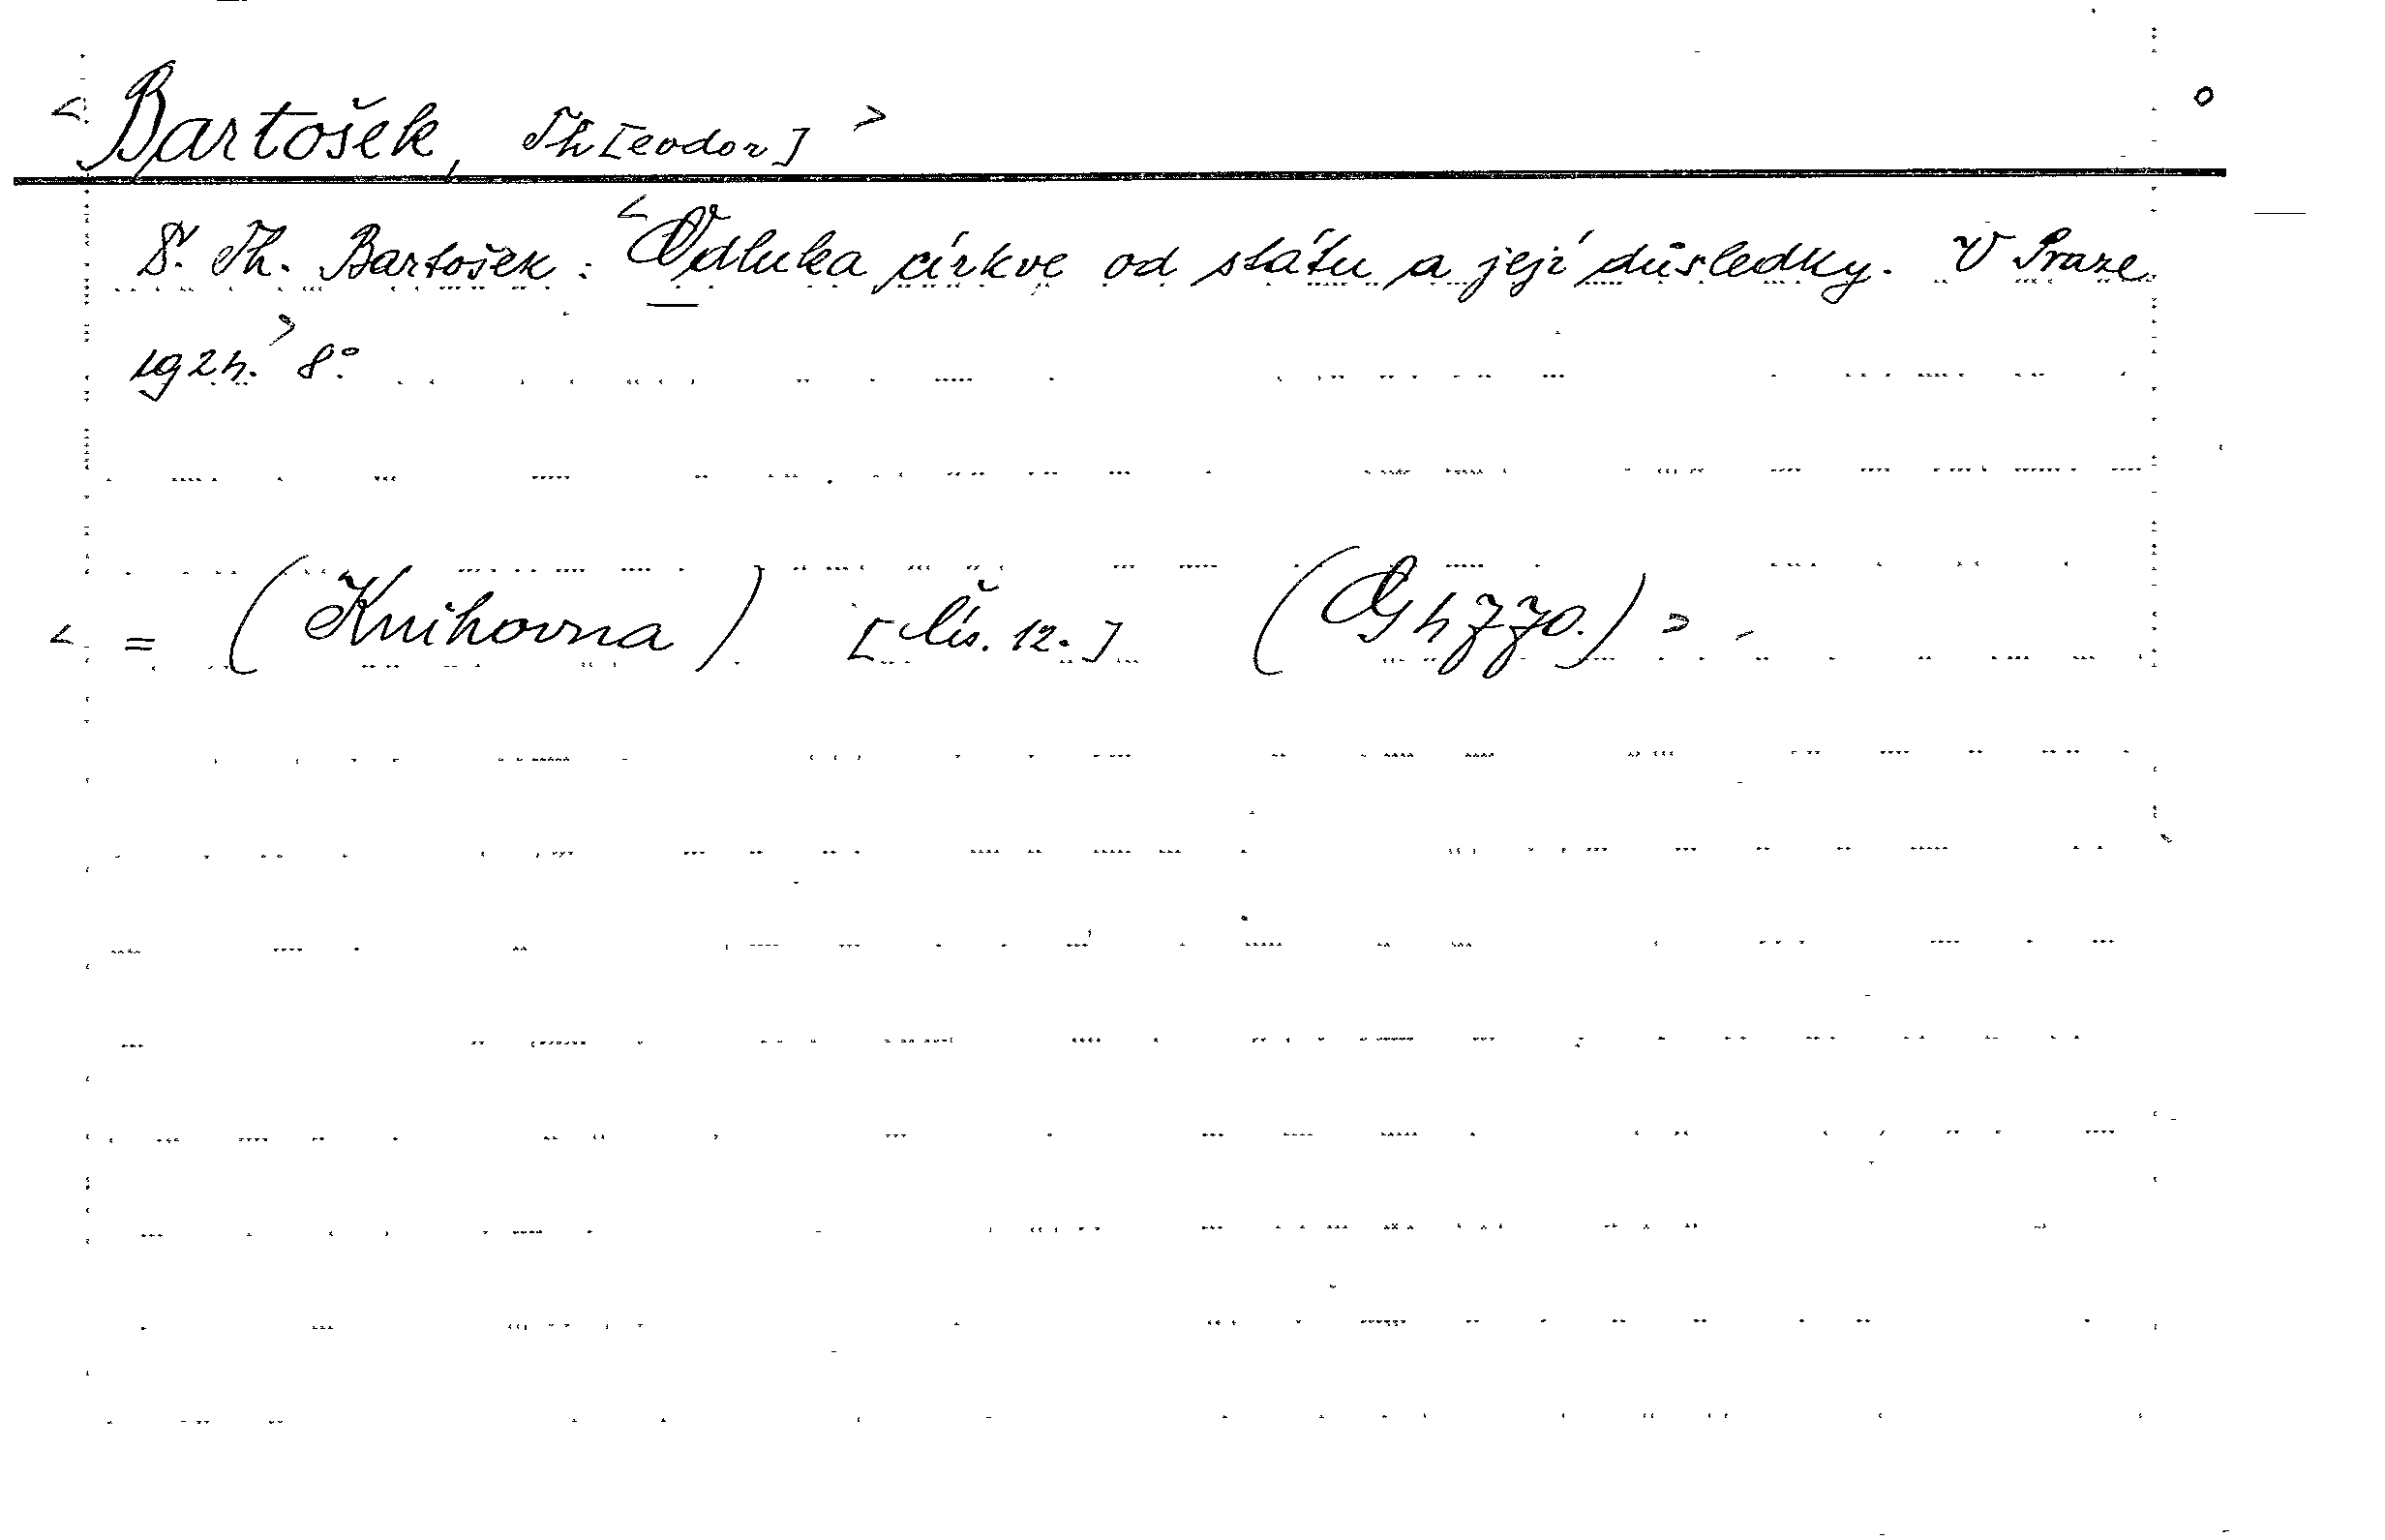 < Bartošek, Th[eodor] >
Dr. Th. Bartošek: < Odluka církve od státu a její důsledky. V Praze
1924. > 8°
< = (Knihovna) [Čís. 12.] (G 4770.) >